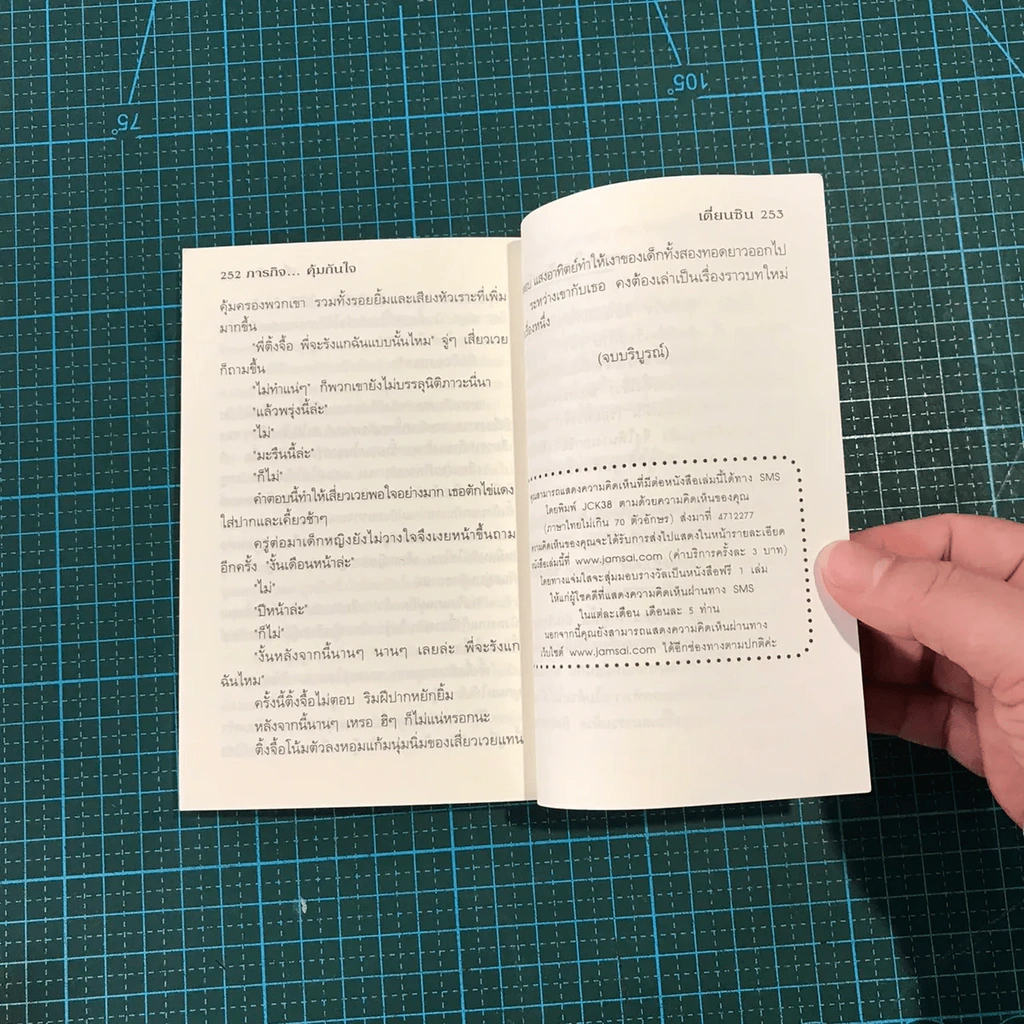 75°
105°
252 ภารกิจ... คุ้มกันใจ
คุ้มครองพวกเขา รวมทั้งรอยยิ้มและเสียงหัวเราะที่เพิ่ม
มากขึ้น
"พี่ติ้งจื้อ พี่จะรังแกฉันแบบนั้นไหม" จู่ๆ เสี่ยวเวย
ก็ถามขึ้น
"ไม่ทำแน่ๆ" ก็พวกเขายังไม่บรรลุนิติภาวะนี่นา
"แล้วพรุ่งนี้ล่ะ"
"ไม่"
"มะรืนนี้ล่ะ"
"ก็ไม่"
คำตอบนี้ทำให้เสี่ยวเวยพอใจอย่างมาก เธอตักไข่แดง
ใส่ปากและเคี้ยวช้าๆ
ครู่ต่อมาเด็กหญิงยังไม่วางใจจึงเงยหน้าขึ้นถาม
อีกครั้ง "งั้นเดือนหน้าล่ะ"
"ไม่"
"ปีหน้าล่ะ"
"ก็ไม่"
"งั้นหลังจากนี้นานๆ นานๆ เลยล่ะ พี่จะรังแก
ฉันไหม"
ครั้งนี้ติ้งจื้อไม่ตอบ ริมฝีปากหยักยิ้ม
หลังจากนี้นานๆ เหรอ ฮิๆ ก็ไม่แน่หรอกนะ
ติ้งจื้อโน้มตัวลงหอมแก้มนุ่มนิ่มของเสี่ยวเวยแทน
เตี่ยนซิน 253
แสงอาทิตย์ทำให้เงาของเด็กทั้งสองทอดยาวออกไป
ระหว่างเขากับเธอ คงต้องเล่าเป็นเรื่องราวบทใหม่
(จบบริบูรณ์)
คุณสามารถแสดงความคิดเห็นที่มีต่อหนังสือเล่มนี้ได้ทาง SMS
โดยพิมพ์ JCK38 ตามด้วยความคิดเห็นของคุณ
(ภาษาไทยไม่เกิน 70 ตัวอักษร) ส่งมาที่ 4712277
ความคิดเห็นของคุณจะได้รับการส่งไปแสดงในหน้ารายละเอียด
หนังสือเล่มนี้ที่ www.jamsai.com (ค่าบริการครั้งละ 3 บาท)
โดยทางแจ่มใสจะสุ่มมอบรางวัลเป็นหนังสือฟรี 1 เล่ม
ให้แก่ผู้โชคดีที่แสดงความคิดเห็นผ่านทาง SMS
ในแต่ละเดือน เดือนละ 5 ท่าน
นอกจากนี้คุณยังสามารถแสดงความคิดเห็นผ่านทาง
เว็บไซต์ www.jamsai.com ได้อีกช่องทางตามปกติค่ะ